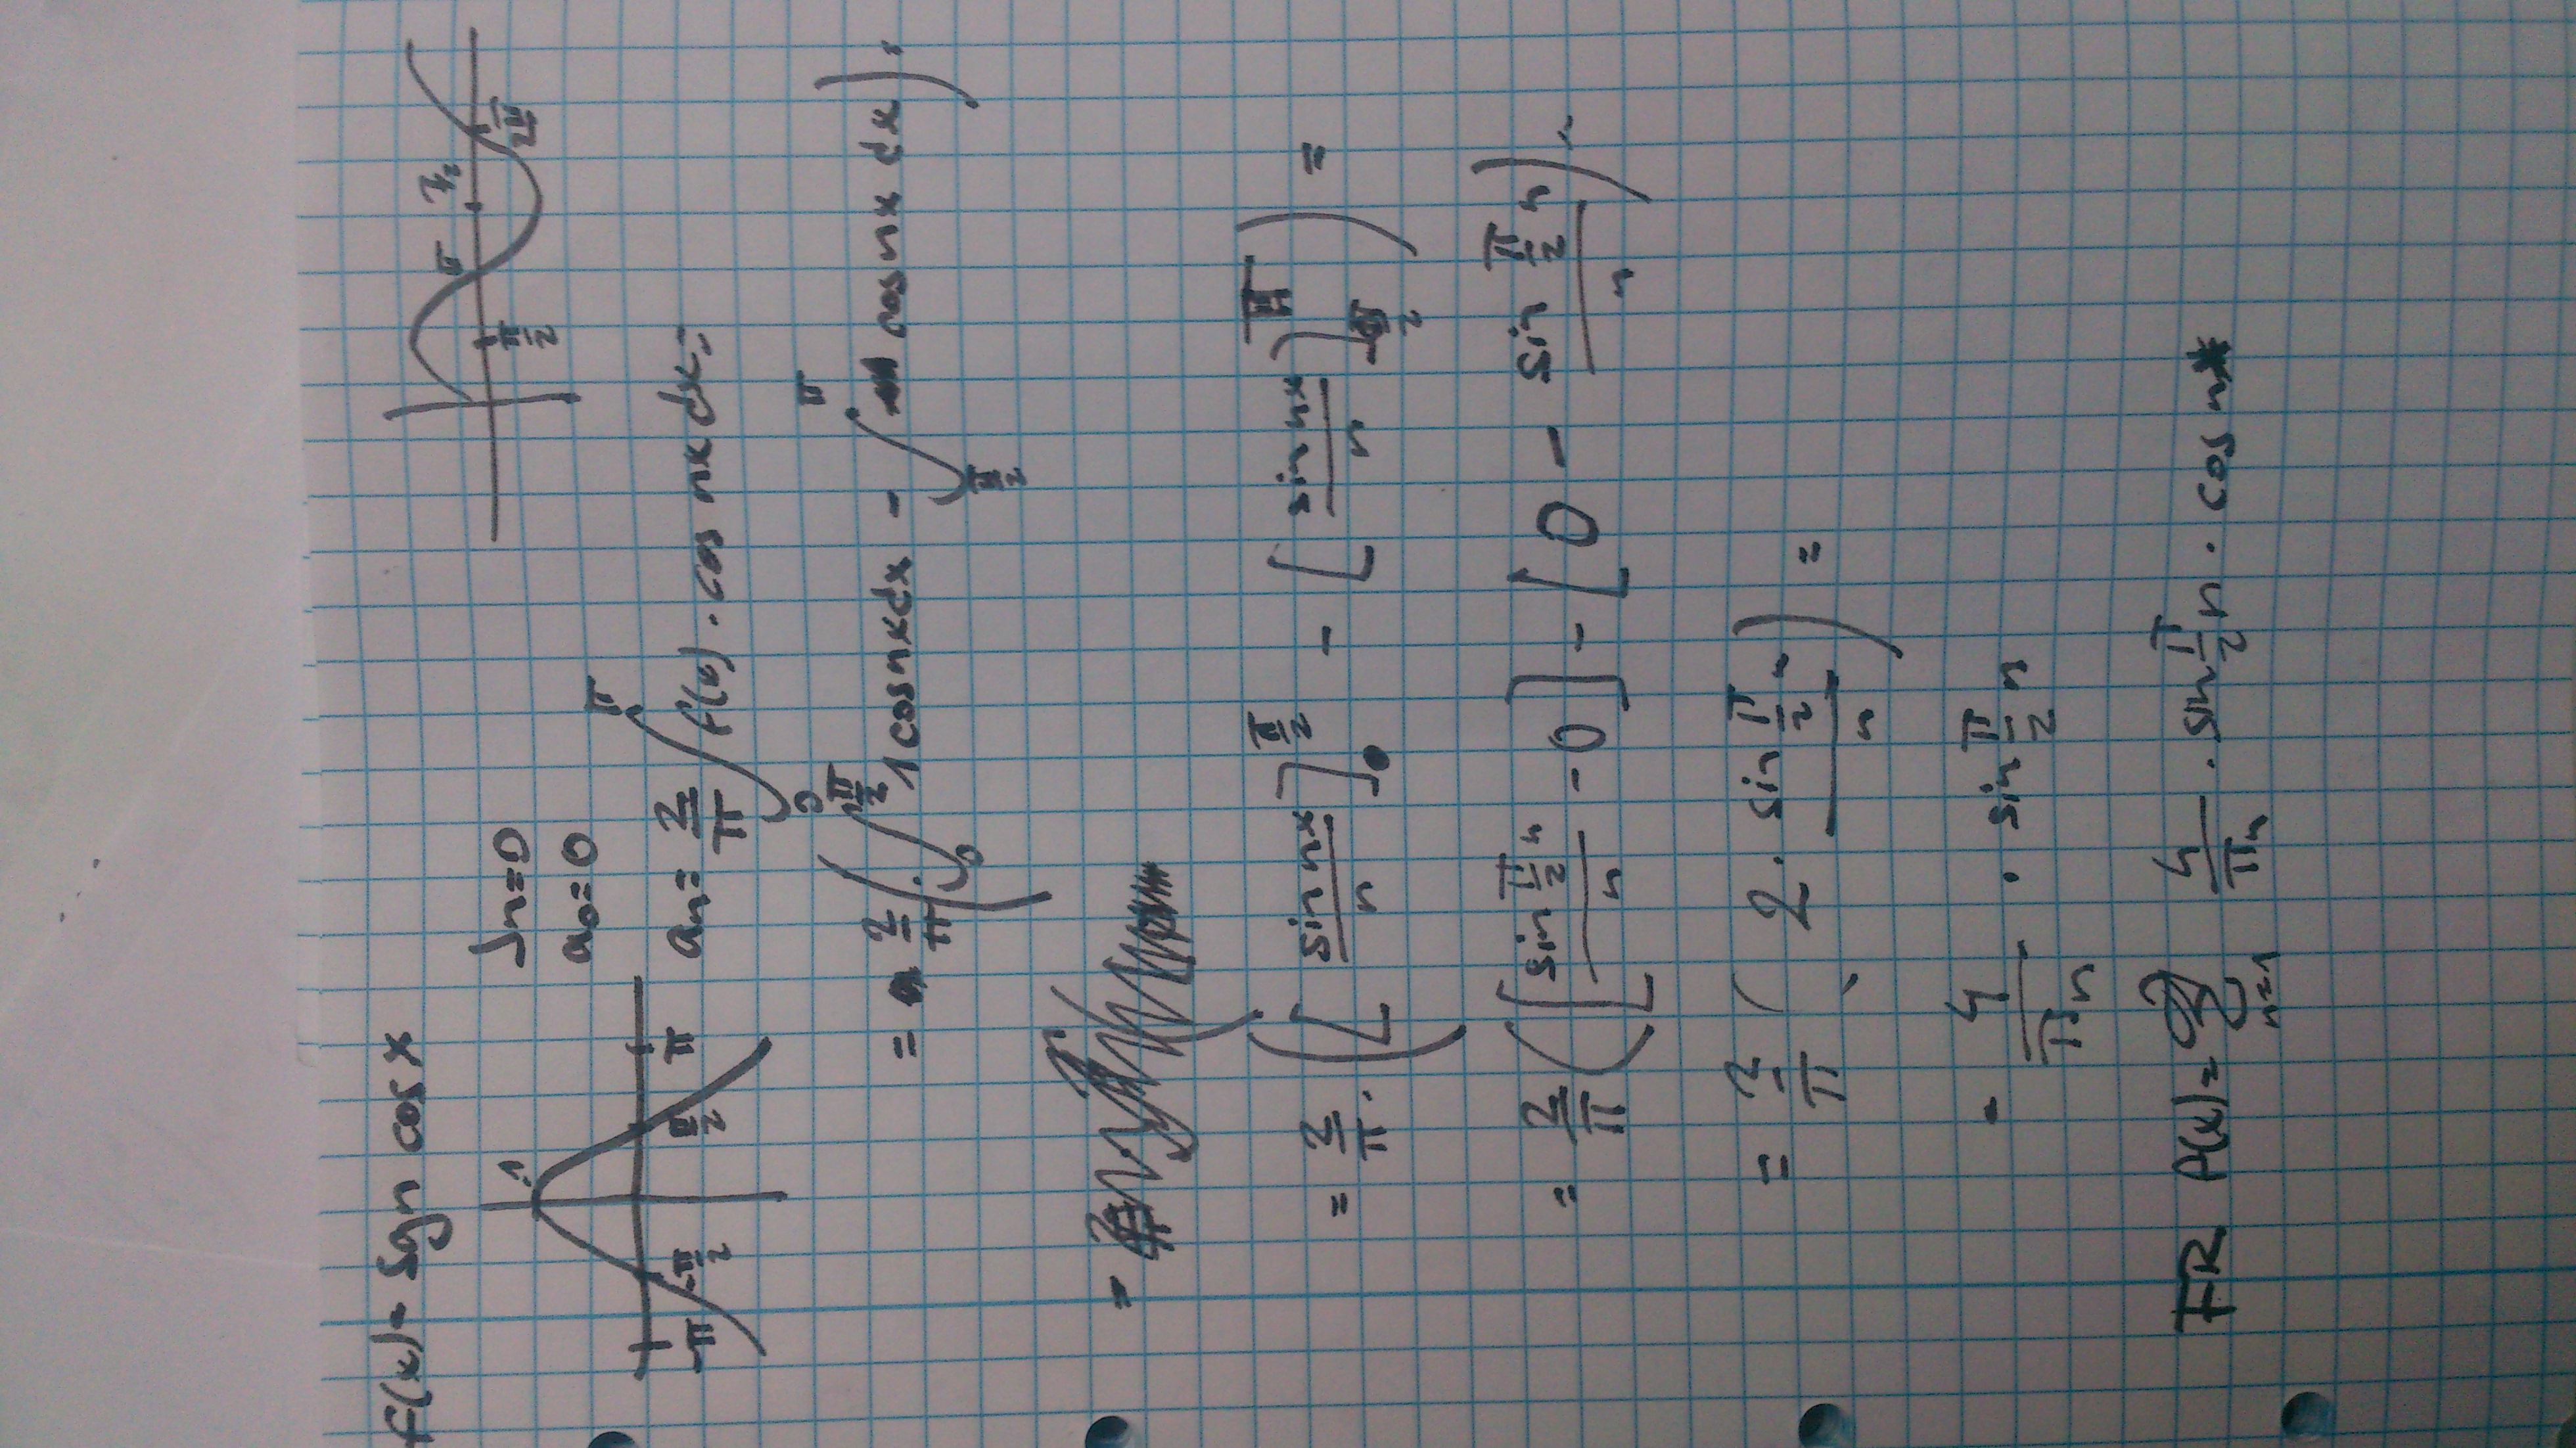 f(x) = sgn cos x
1
-π -π/2 π/2 π
π/2 π 2π
bn=0
a0=0
an= 2/π ∫_0^π f(x) · cos nx dx =
= 2/π · ( ∫_0^{π/2} 1 cos nx dx - ∫_{π/2}^π cos nx dx ) =
= 2/π · ( [ sin nx / n ]_0^{π/2} - [ sin nx / n ]_{π/2}^π ) =
= 2/π ( [ sin π/2 n / n - 0 ] - [ 0 - sin π/2 n / n ) =
= 2/π ( 2 · sin π/2 n / n ) =
= 4/πn · sin π/2 n
FR f(x) = ∑_{n=1}^∞ 4/πn · sin π/2 n · cos nx